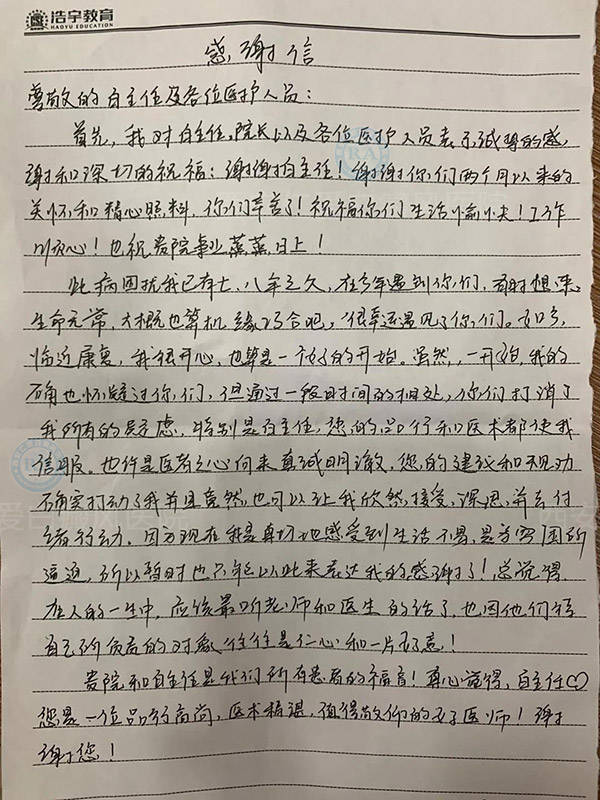 浩宇教育
HAOYU EDUCATION
感谢信
尊敬的白主任及各位医护人员：
首先，我对白主任、院长以及各位医护人员表示诚挚的感
谢和深切的祝福：谢谢白主任！谢谢你们两个月以来的
关怀和精心照料，你们辛苦了！祝福你们生活愉快！工作
顺心！也祝贵院事业蒸蒸日上！
此病困扰我已有七、八年之久，在今年遇到你们，有时想来
生命无常，大概也算机缘巧合吧，很幸运遇见了你们。如今，
临近康复，我很开心，也算是一个好的开始。虽然，一开始，我的
确也怀疑过你们，但通过一段时间的相处，你们打消了
我所有的疑虑，特别是白主任，您的品行和医术都使我
信服。也许是医者之心向来真诚明澈，您的建议和规劝
确实打动了我并且竟然也可以让我欣然接受，深思，并去付
诸行动。因为现在我是真切地感受到生活不易，是为穷困所
逼迫，所以暂时也只能以此来表达我的感谢了！总觉得
在人的一生中，应该最听老师和医生的话了，也因他们待
自己所负责的对象，往往是仁心和一片好意！
贵院和白主任是我们所有患者的福音！真心觉得，白主任♡
您是一位品行高尚，医术精湛，值得敬仰的好医师！谢
谢您！